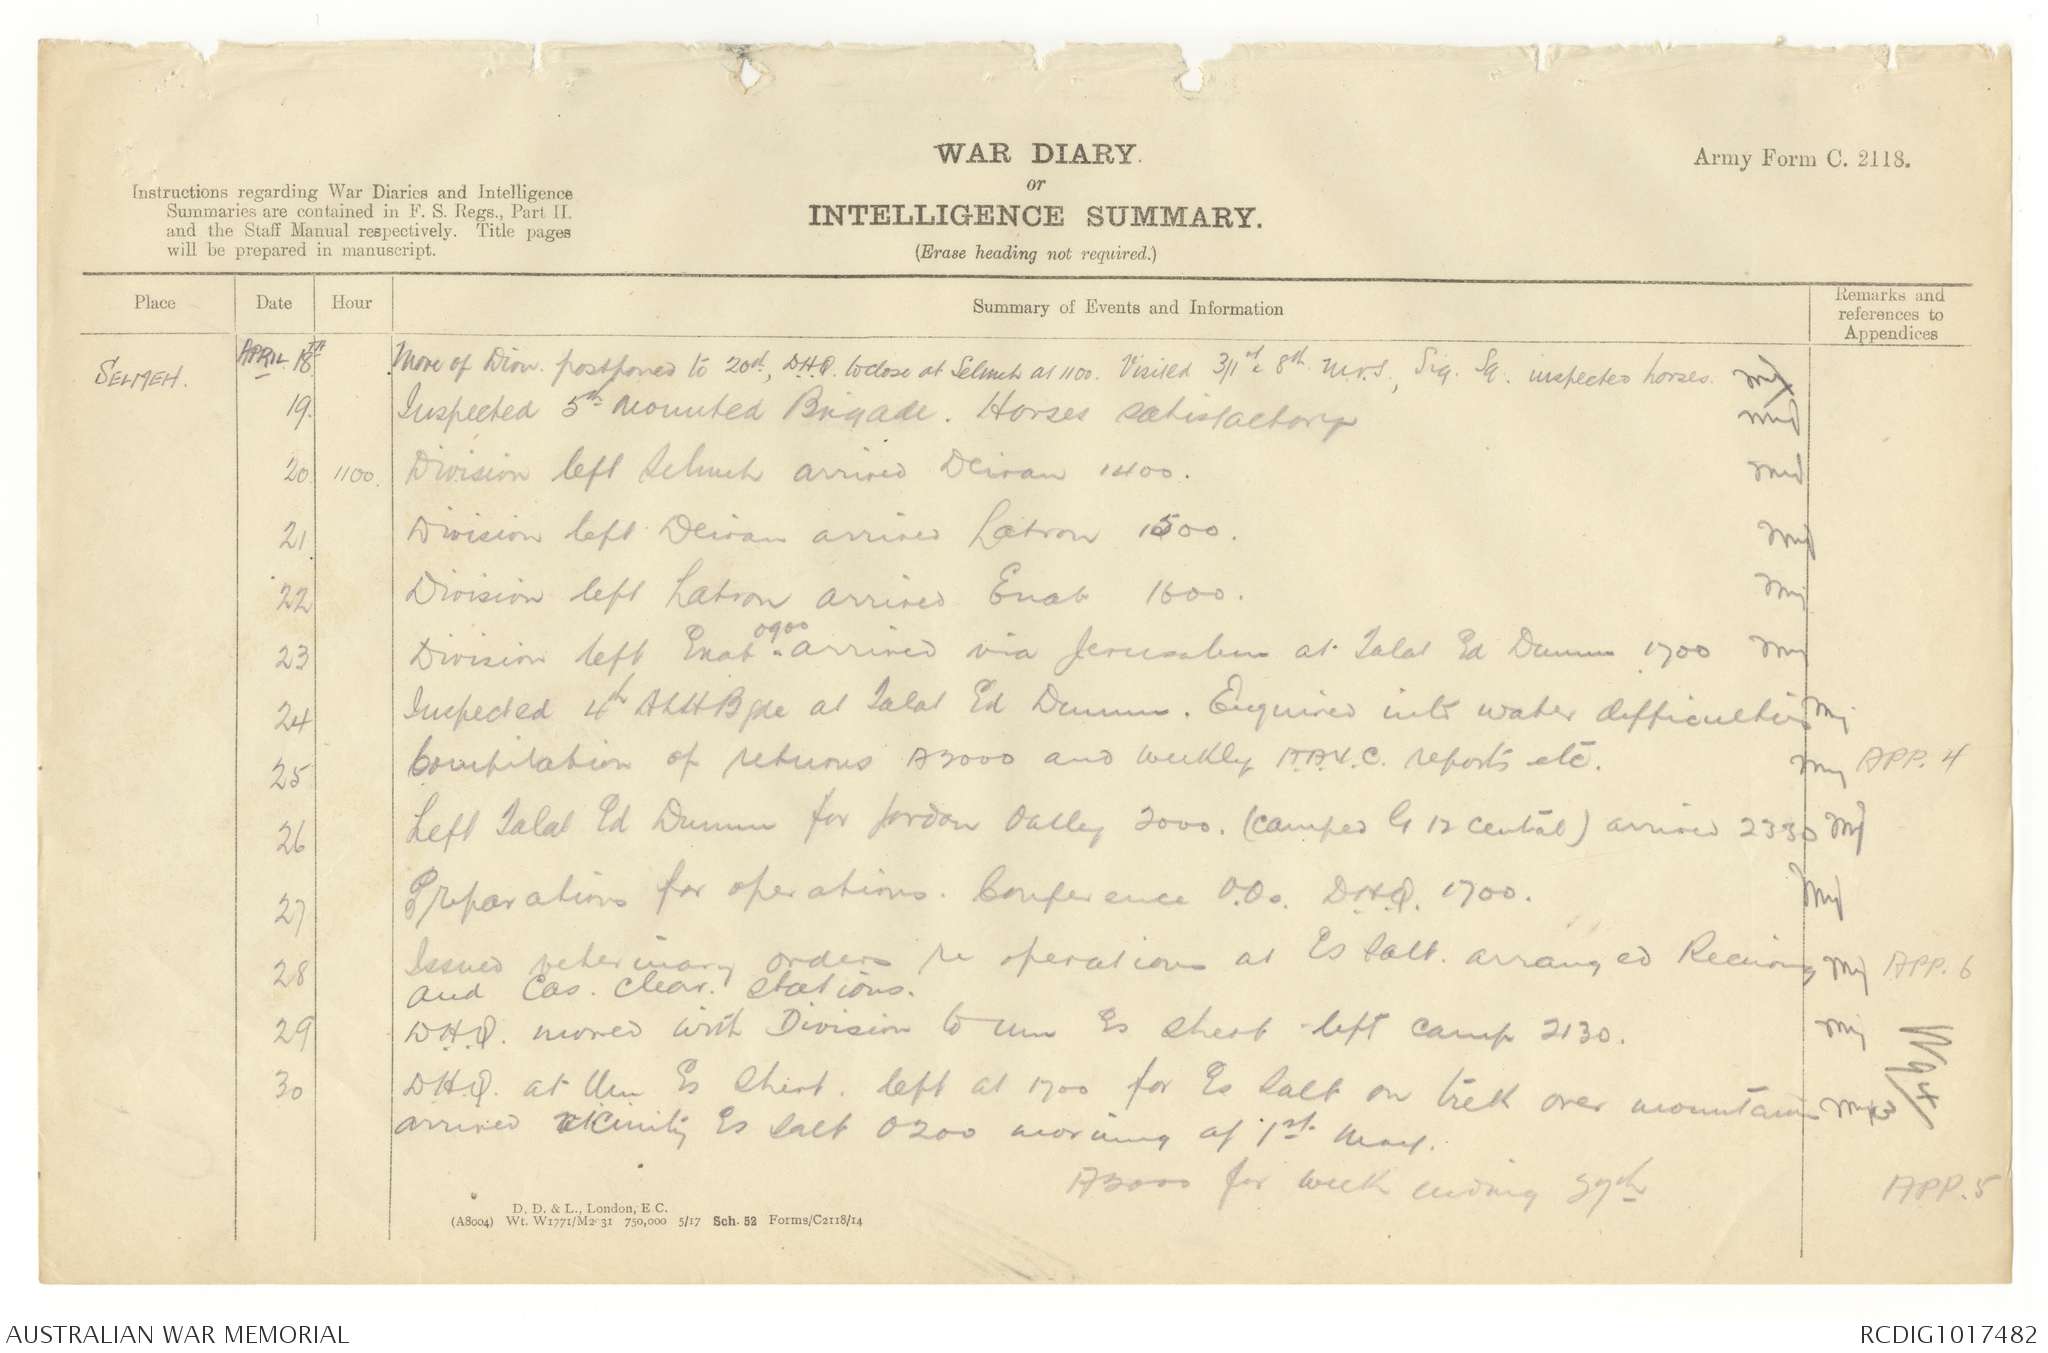 WAR DIARY.
or
INTELLIGENCE SUMMARY.
(Erase heading not required.)
Army Form C. 2118.
Instructions regarding War Diaries and Intelligence
Summaries are contained in F. S. Regs., Part II.
and the Staff Manual respectively. Title pages
will be prepared in manuscript.
Place Date Hour Summary of Events and Information Remarks and
references to
Appendices
SELMEH. APRIL 18TH Move of Divn. postponed to 20th, D.H.Q. to close at Selmeh at 1100. Visited 8th M.V.S., Sig. Sq. inspected horses.
19. Inspected 5th Mounted Brigade. Horses satisfactory
20 1100. Division left Selmeh arrived Deiran 1400.
21 Division left Deiran arrived Latron 1500.
22 Division left Latron arrived Enab 1600.
23 Division left Enab 0900 arrived via Jerusalem at Talat Ed Dumm 1700
24 Inspected 4th ALH Bgde at Talat Ed Dumm. Enquired into water difficulties
25 Compilation of returns A2000 and weekly A.A.V.C. reports etc. APP. 4
26 Left Talat Ed Dumm for Jordan Valley 2000. (camped G 12 central) arrived 2330
27 Preparations for operations. Conference D.H.Q. 1700.
28 Issued veterinary orders re operations at Es Salt. arranged Receiving APP. 6
and Cas. Clear. Stations.
29 D.H.Q. moved with Division to Um Es Shert left camp 2130.
30 D.H.Q. at Um Es Shert. left at 1700 for Es Salt on trek over mountains
arrived vicinity Es Salt 0200 morning of 1st May.
A2000 for week ending 27th APP. 5
D. D. & L., London, E C.
(A8004) Wt. W1771/M2 31 750,000 5/17 Sch. 52 Forms/C2118/14
AUSTRALIAN WAR MEMORIAL RCDIG1017482